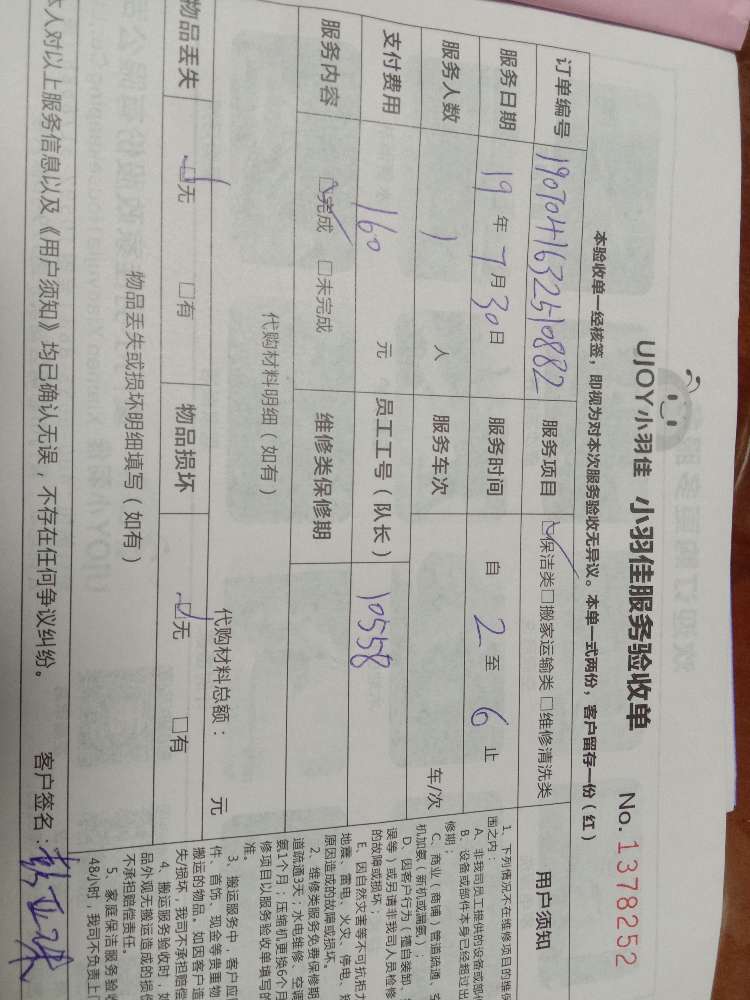 UJOY小羽佳 小羽佳服务验收单 No. 1378252
本验收单一经核签，即视为对本次服务验收无异议。本单一式两份，客户留存一份（红）
订单编号 1907041632510882 服务项目 ☑保洁类□搬家运输类□维修清洗类
服务日期 19年7月30日 服务时间 自2至6止
服务人数 1人 服务车次 车/次
支付费用 160元 员工工号（队长） 10558
服务内容 ☑完成 □未完成 维修类保修期
代购材料明细（如有）
代购材料总额： 元
物品丢失 ☑无 □有 物品损坏 ☑无 □有
物品丢失或损坏明细填写（如有）
本人对以上服务信息以及《用户须知》均已确认无误，不存在任何争议纠纷。 客户签名：
用户须知
1、下列情况不在维修项目的维保
围之内：
A、非我司员工提供的设备或部件
B、设备或部件本身已经超过出
修期；
C、商业（商铺）管道疏通、空
机加氨（新机或漏氨）；
D、因客户行为（擅自装卸、
误等）或另请非我司人员检修
的故障或损坏；
E、因自然灾害等不可抗拒力
地震、雷电、火灾、停电、
原因造成的故障或损坏。
2、维修类服务免费保修期
道疏通3天；水电维修、空调
氨1个月；压缩机更换6个月
修项目以服务验收单填写的
准。
3、搬运服务中，客户应
件、首饰、现金等贵重物
搬运的物品。如因客户造
失/损坏，我司不承担赔偿
4、搬运服务验收时，如
品外观无搬运造成的损
不承担赔偿责任。
5、家庭保洁服务验收
48小时，我司不负责上门